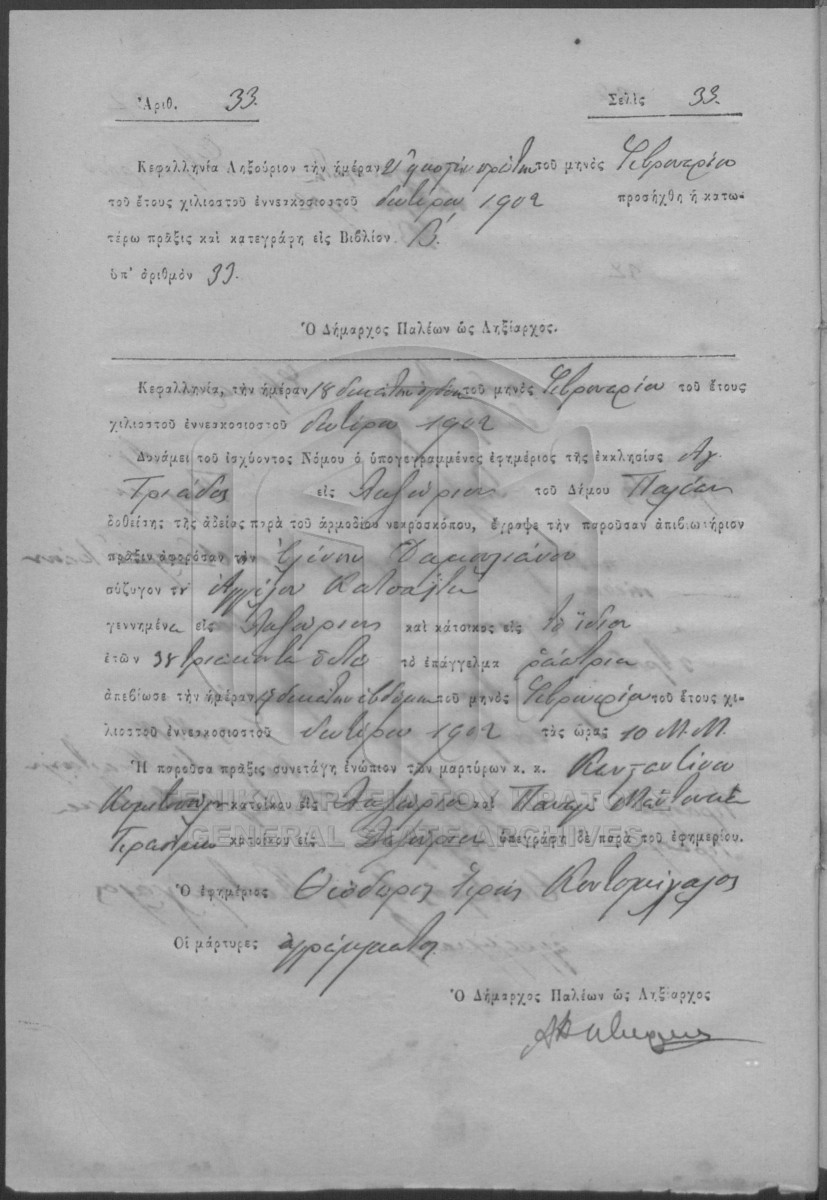 Ἀριθ. 33. Σελὶς 33.
Κεφαλληνία Ληξούριον τὴν ἡμέραν 21 εἰκοστὴν πρώτην τοῦ μηνὸς Φεβρουαρίου
τοῦ ἔτους χιλιοστοῦ ἐννεακοσιοστοῦ δευτέρου 1902 προσήχθη ἡ κατω-
τέρω πρᾶξις καὶ κατεγράφη εἰς Βιβλίον Β΄.
ὑπ' ἀριθμὸν 33.
Ὁ Δήμαρχος Παλέων ὡς Ληξίαρχος.
Κεφαλληνία, τὴν ἡμέραν 18 δεκάτην ὀγδόην τοῦ μηνὸς Φεβρουαρίου τοῦ ἔτους
χιλιοστοῦ ἐννεακοσιοστοῦ δευτέρου 1902
Δυνάμει τοῦ ἰσχύοντος Νόμου ὁ ὑπογεγραμμένος ἐφημέριος τῆς ἐκκλησίας Ἁγ.
Τριάδος εἰς τοῦ Δήμου Παλέων
δοθείσης τῆς ἀδείας παρὰ τοῦ ἁρμοδίου νεκροσκόπου, ἔγραψε τὴν παροῦσαν ἀπιβιωτήριον
πρᾶξιν ἀφορῶσαν τὴν Ἑλένην
σύζυγον τοῦ Ἀγγέλου
γεννημένα εἰς καὶ κάτοικος εἰς τὸ ἴδιον
ἐτῶν 38 τριάκοντα ὀκτὼ τὸ ἐπάγγελμα ῥάπτρια
ἀπεβίωσε τὴν ἡμέραν 17 δεκάτην ἑβδόμην τοῦ μηνὸς Φεβρουαρίου τοῦ ἔτους χι-
λιοστοῦ ἐννεακοσιοστοῦ δευτέρου 1902 τὰς ὥρας 10 Μ.Μ.
Ἡ παροῦσα πρᾶξις συνετάγη ἐνώπιον τῶν μαρτύρων κ. κ. Κωνσταντίνου
κατοίκου εἰς καὶ Παναγῆ
κατοίκου εἰς ὑπεγράφη δὲ παρὰ τοῦ ἐφημερίου.
ΓΕΝΙΚΑ ΑΡΧΕΙΑ ΤΟΥ ΚΡΑΤΟΥΣ
GENERAL STATE ARCHIVES
Ὁ ἐφημέριος Θεόδωρος Ἱερεὺς Κοντομίχαλος
Οἱ μάρτυρες ἀγράμματοι
Ὁ Δήμαρχος Παλέων ὡς Ληξίαρχος